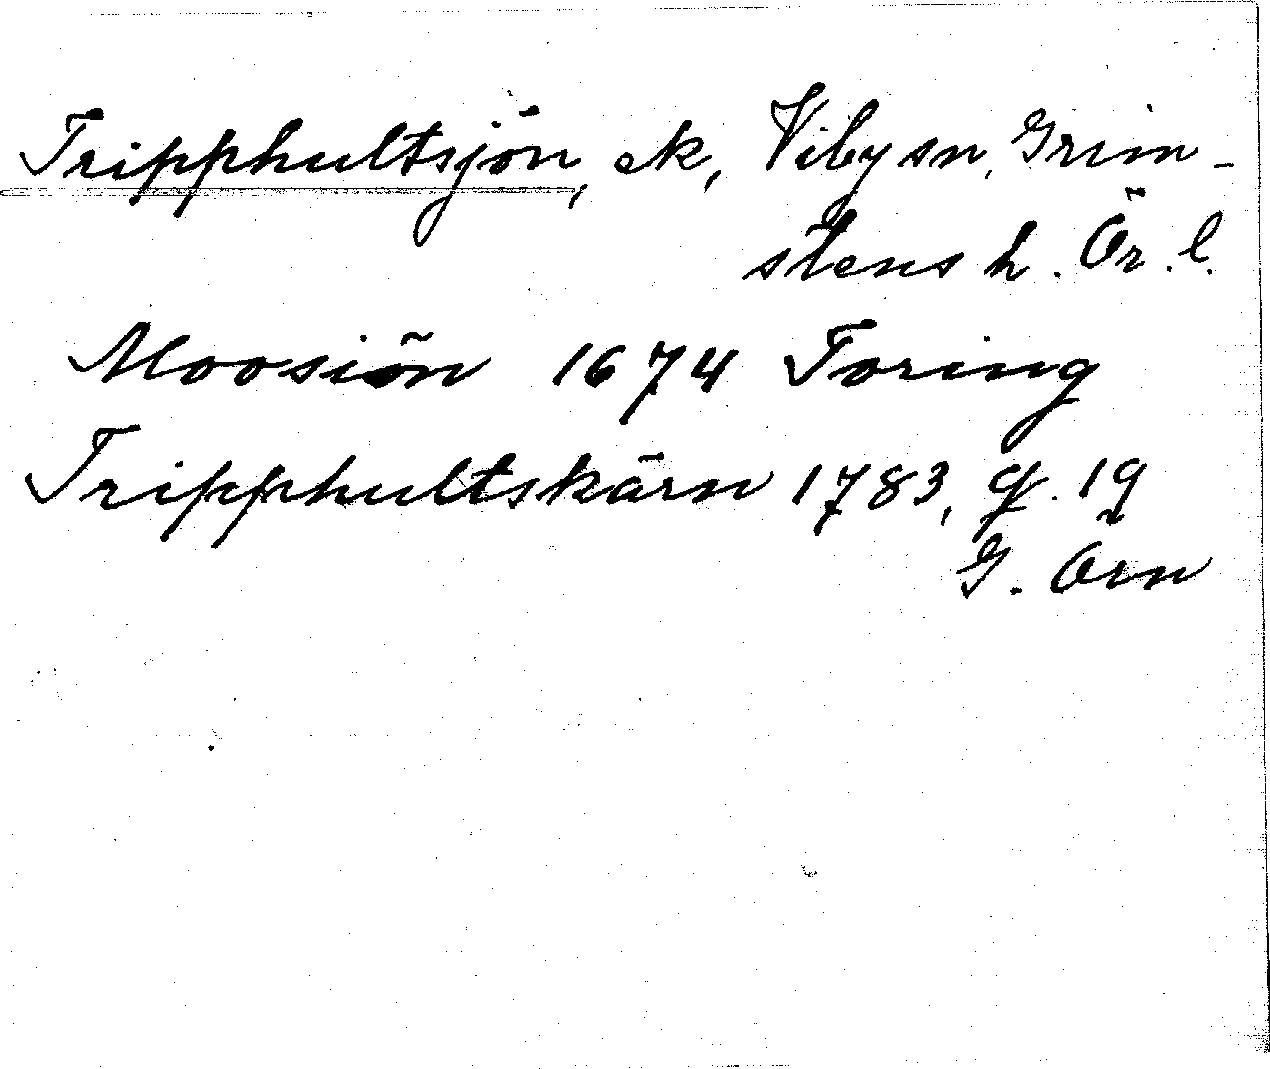 Tripphultsjön, ek, Viby sn, Grim-
stens h. Ör. l.
Moosiön 1674 Toring
Tripphultskärn 1783, q. 19
G. Örn